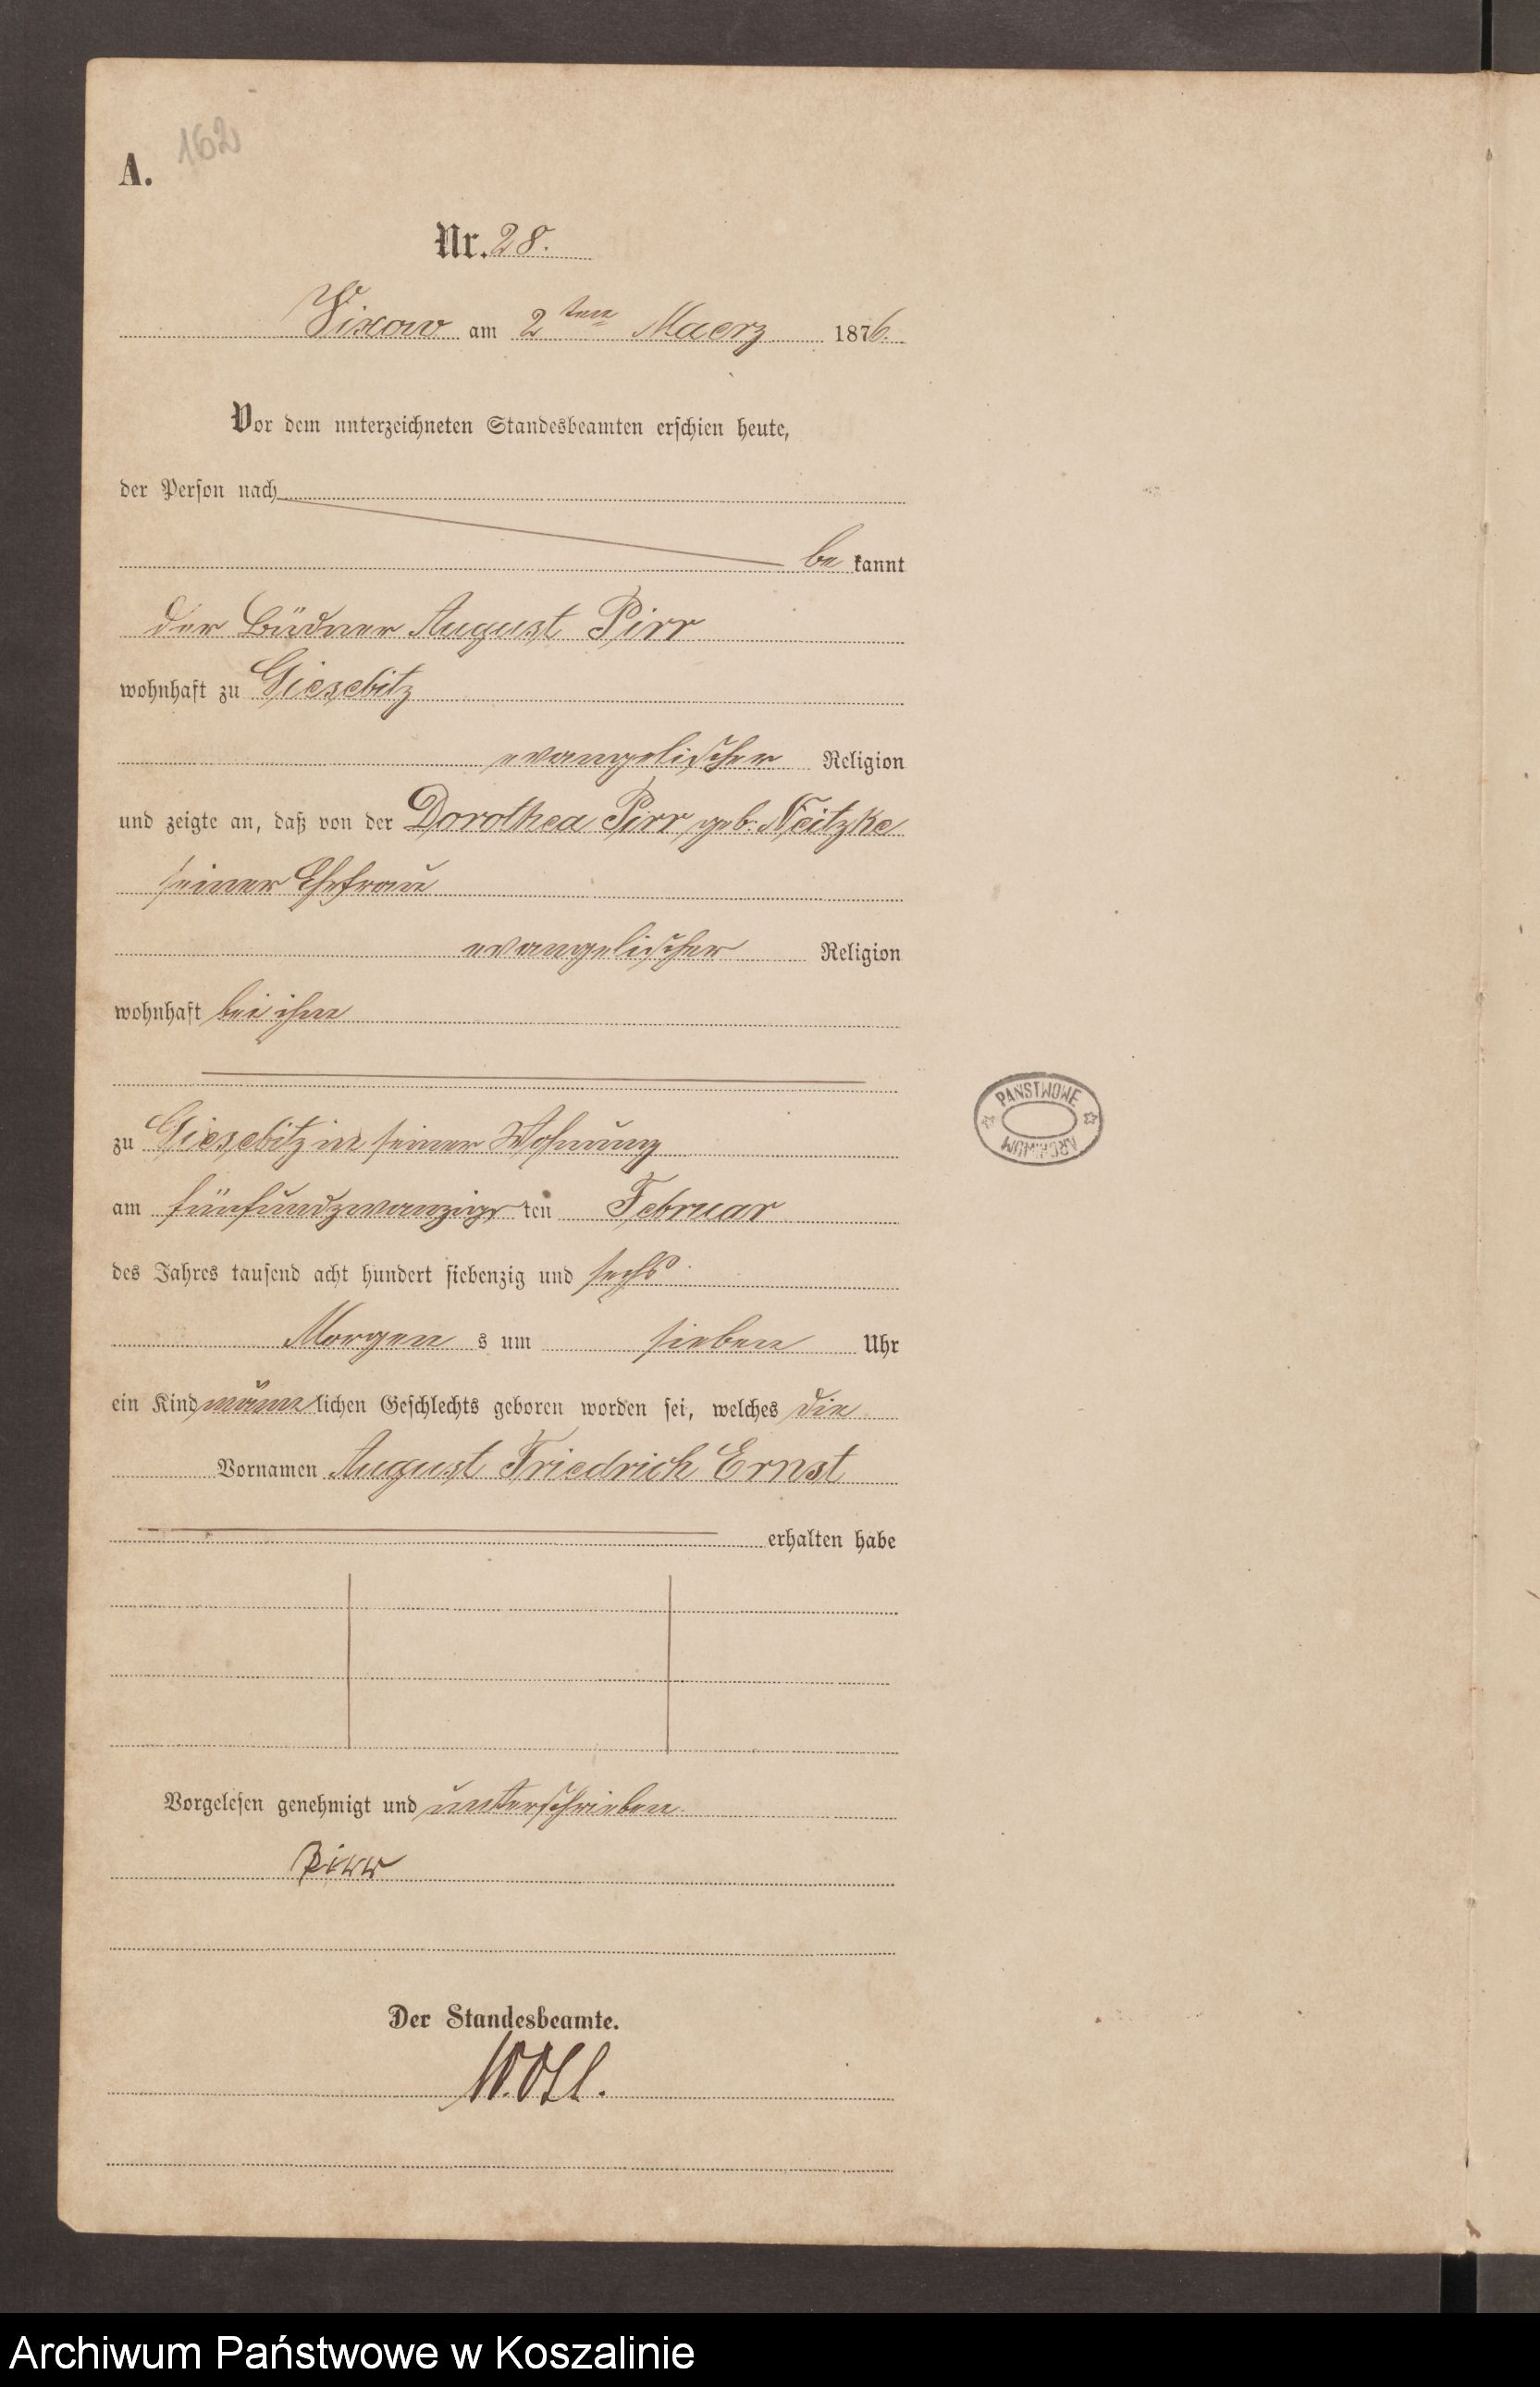 162
A.
Nr. 28.
Vixow am 2ten Maerz 1876.
Vor dem unterzeichneten Standesbeamten erschien heute,
der Person nach
bekannt
der Büdner August Pirr
wohnhaft zu Giesebitz
evangelischer Religion
und zeigte an, daß von der Dorothea Pirr geb. Neitzke
seiner Ehefrau
evangelischer Religion
wohnhaft bei ihm
zu Giesebitz in seiner Wohnung
am fünfundzwanzigsten Februar
des Jahres tausend acht hundert siebenzig und sechs
Morgens um sieben Uhr
ein Kind männlichen Geschlechts geboren worden sei, welches die
Vornamen August Friedrich Ernst
erhalten habe
Vorgelesen genehmigt und unterschrieben.
Pirr
Der Standesbeamte.
PAŃSTWOWE
ARCHIWUM
Archiwum Państwowe w Koszalinie